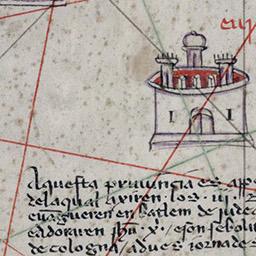 Aquesta pruuincia es ape
de la qual axiren los iii R
e uangueren en batlem de judea
e adoraren jhu x̅. e son sebolits
de cologna a dues jornades